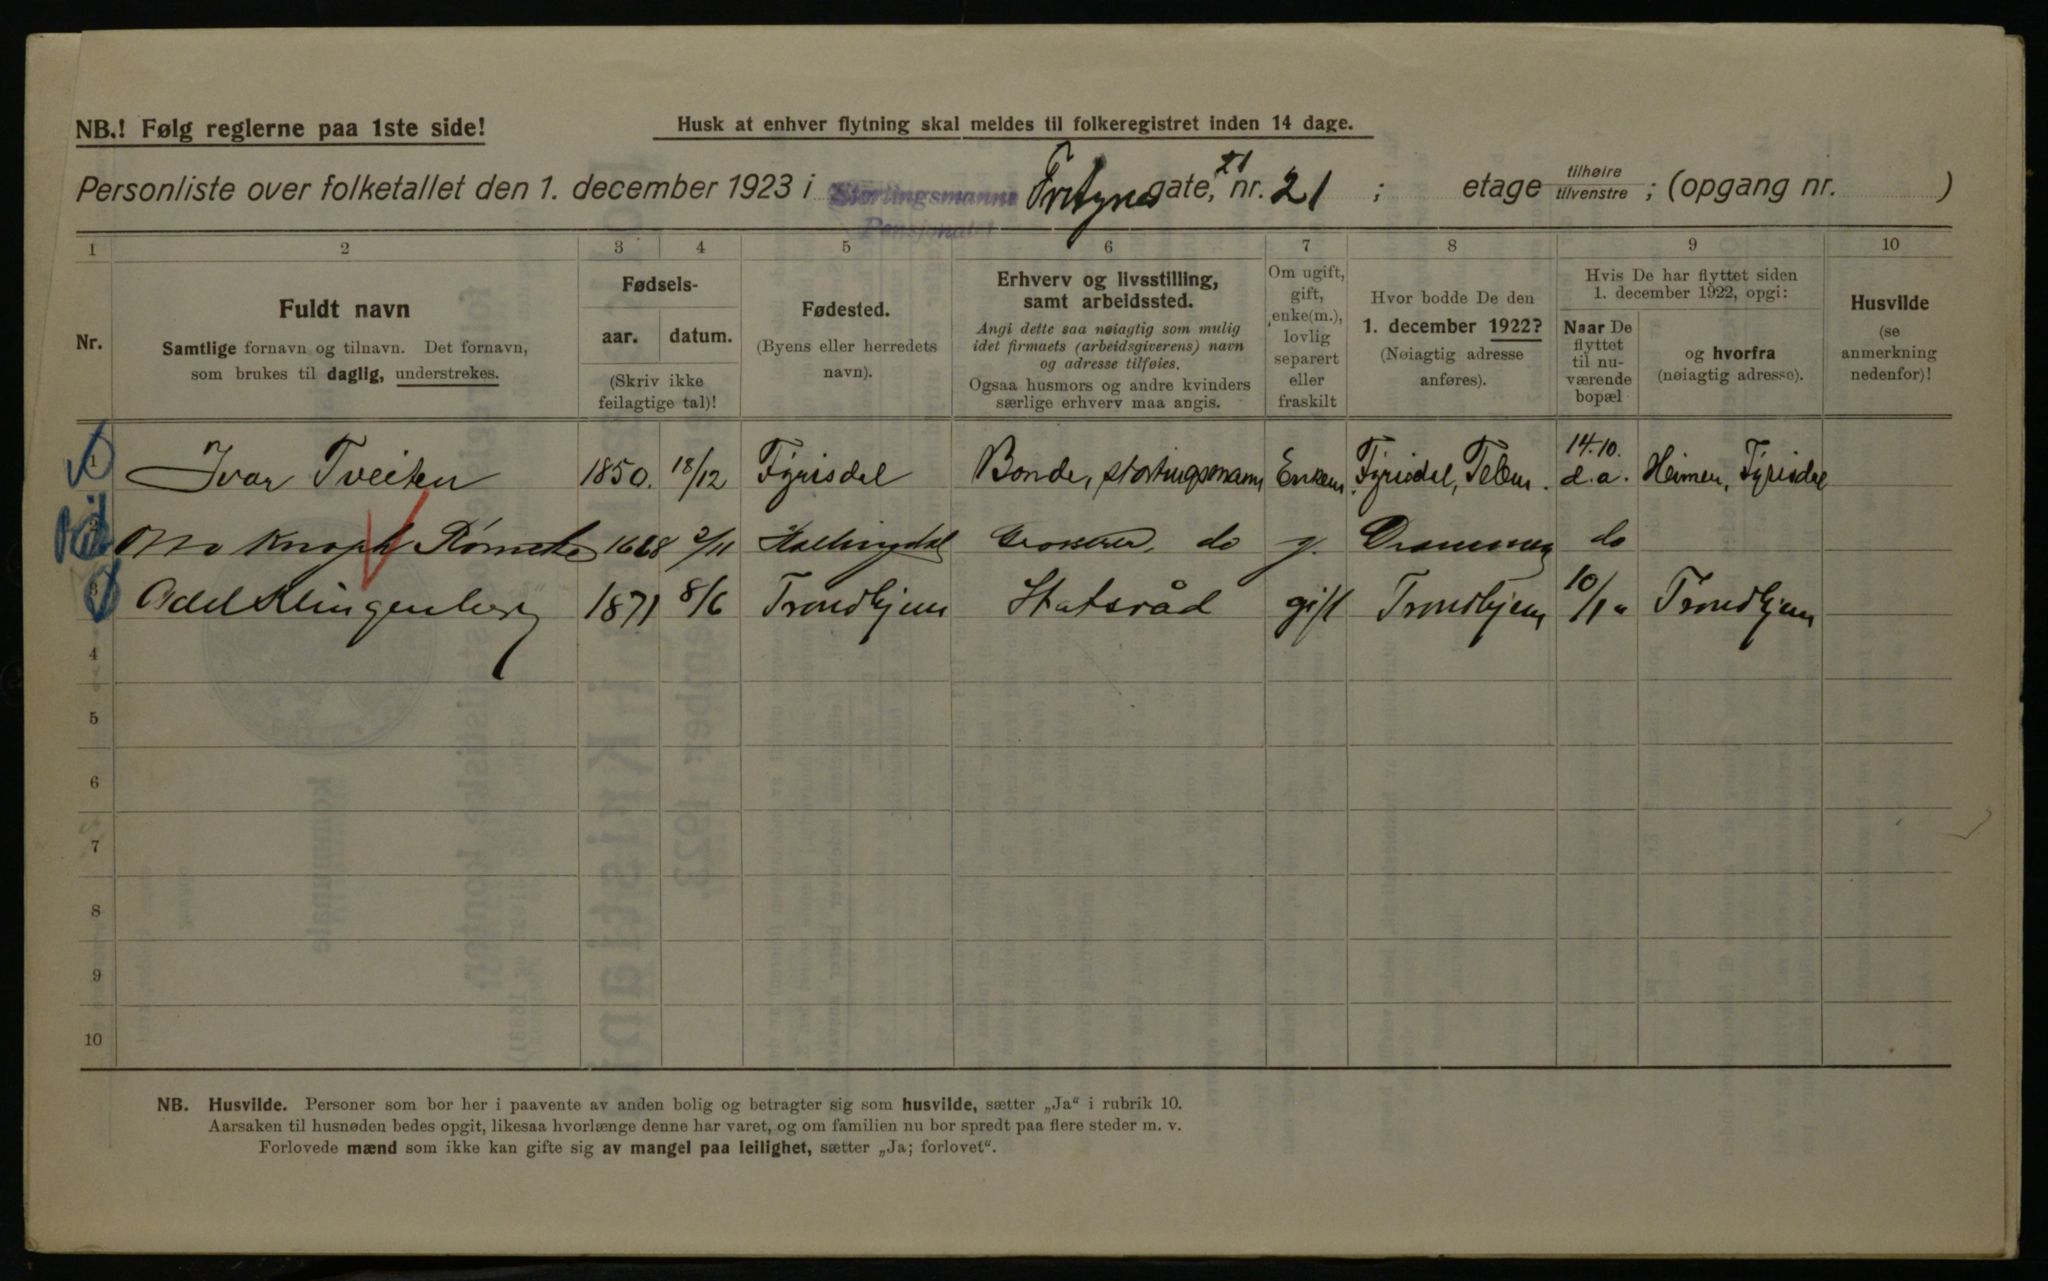 NB.! Følg reglerne paa 1ste side!
Husk at enhver flytning skal meldes til folkeregistret inden 14 dage.
Personliste over folketallet den 1. december 1923 i Stortingsmanns Pensjonatet gate, nr. 21 ; etage tilhøire tilvenstre ; (opgang nr. )
1 2 3 4 5 6 7 8 9 10
Nr.
Fuldt navn
Samtlige fornavn og tilnavn. Det fornavn,
som brukes til daglig, understrekes.
Fødsels-
aar. datum.
(Skriv ikke
feilagtige tal)!
Fødested.
(Byens eller herredets
navn).
Erhverv og livsstilling,
samt arbeidssted.
Angi dette saa nøiagtig som mulig
idet firmaets (arbeidsgiverens) navn
og adresse tilføies.
Ogsaa husmors og andre kvinders
særlige erhverv maa angis.
Om ugift,
gift,
enke(m.),
lovlig
separert
eller
fraskilt
Hvor bodde De den
1. december 1922?
(Nøiagtig adresse
anføres).
Hvis De har flyttet siden
1. december 1922, opgi:
Naar De
flyttet
til nu-
værende
bopæl
og hvorfra
(nøiagtig adresse).
Husvilde
(se
anmerkning
nedenfor)!
1 Ivar Tveiten 1850. 18/12 Fyrisdal Bonde, stortingsmann Enkem. Fyrisdal, Telem. 14.10. d.a. Heimen, Fyrisdal
2 Knoph 1868 2/11 Hallingdal Grosserer, do g. Drammen do
3 Odd Klingenberg 1871 8/6 Trondhjem Statsråd gift Trondhjem 10/1 Trondhjem
4
5
6
7
8
9
10
NB. Husvilde. Personer som bor her i paavente av anden bolig og betragter sig som husvilde, sætter „Ja“ i rubrik 10.
Aarsaken til husnøden bedes opgit, likesaa hvorlænge denne har varet, og om familien nu bor spredt paa flere steder m. v.
Forlovede mænd som ikke kan gifte sig av mangel paa leilighet, sætter „Ja; forlovet“.